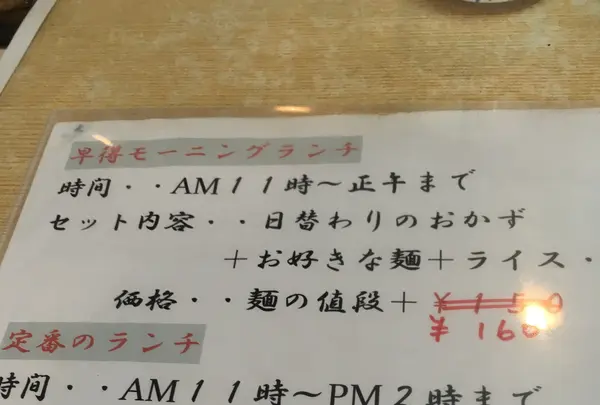 早得モーニングランチ
時間・・AM11時～正午まで
セット内容・・日替わりのおかず
＋お好きな麺＋ライス・
価格・・麺の値段＋¥150
¥160
定番のランチ
時間・・AM11時～PM2時まで